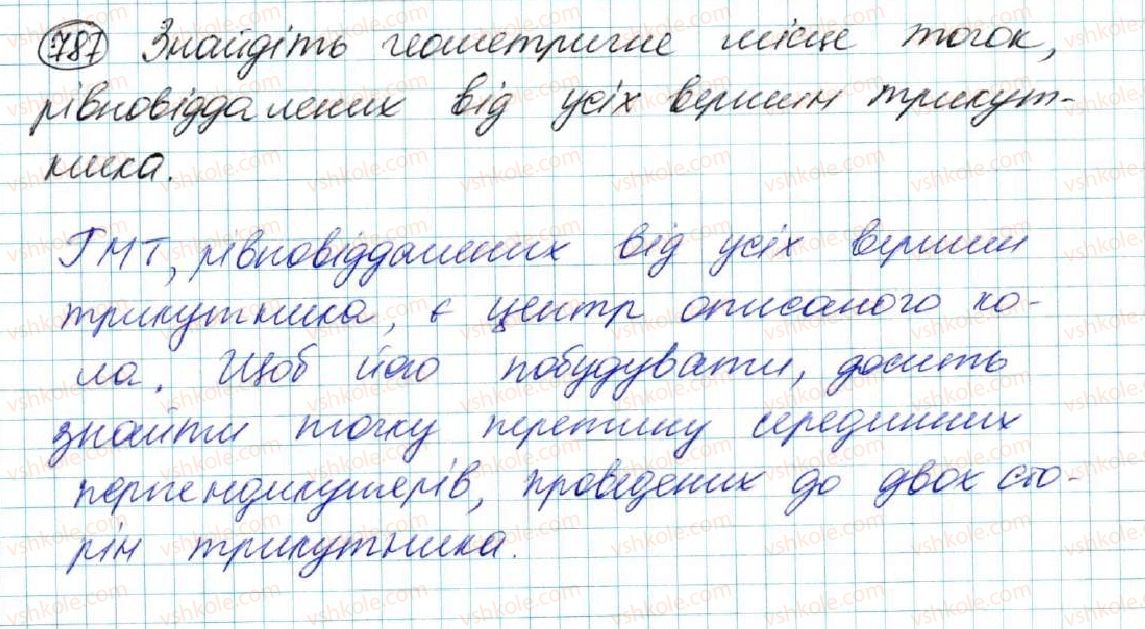 787 Знайдіть геометричне місце точок,
рівновіддалених від усіх вершин трикут-
ника.
ГМТ, рівновіддалених від усіх вершин
трикутника, є центр описаного ко-
ла. Щоб його побудувати, досить
знайти точку перетину серединних
перпендикулярів, проведених до двох сто-
рін трикутника.